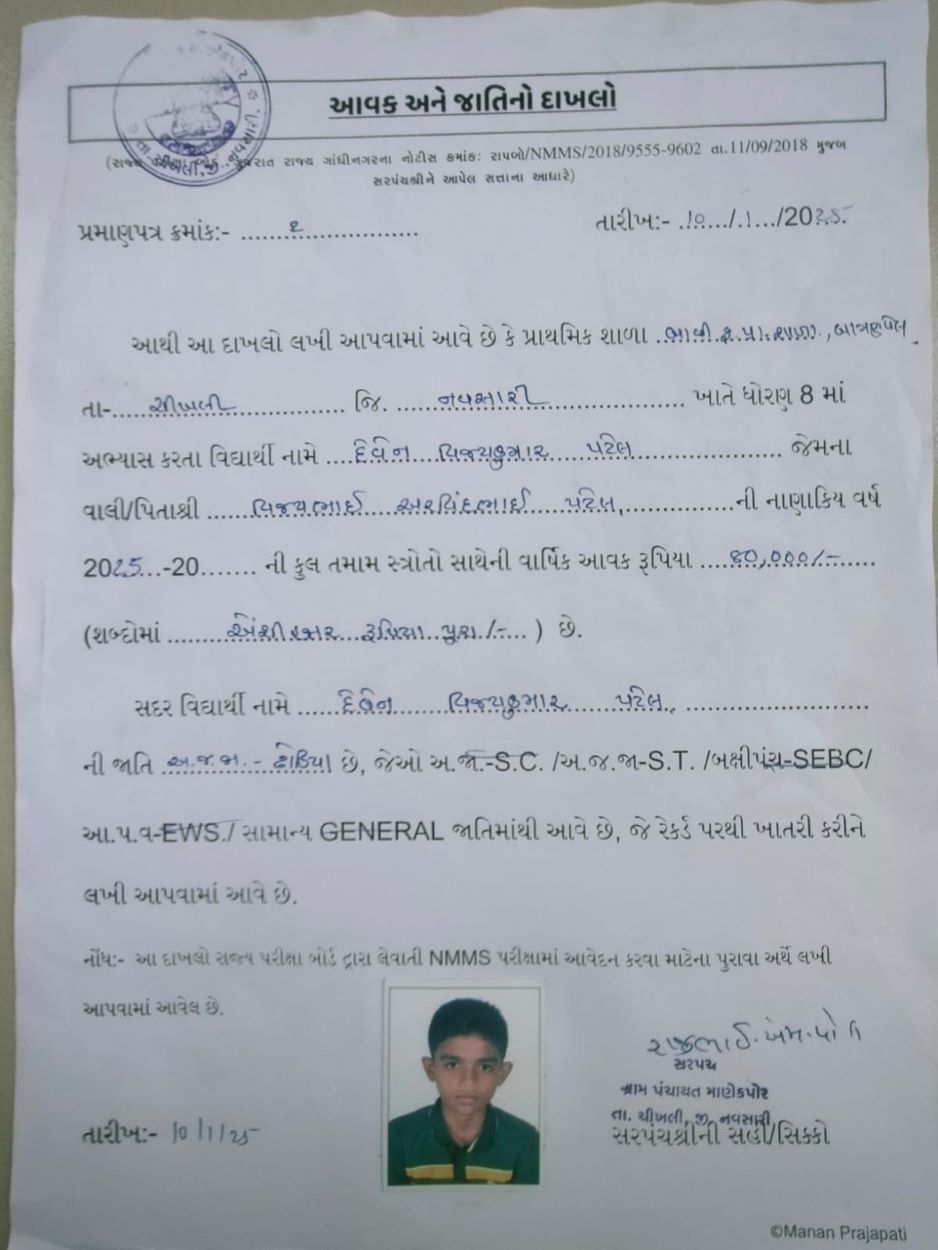 આવક અને જાતિનો દાખલો
(રાજ્ય પરીક્ષા બોર્ડ, ગુજરાત રાજ્ય ગાંધીનગરના નોટીસ ક્રમાંક: રાપબો/NMMS/2018/9555-9602 તા.11/09/2018 મુજબ
સરપંચશ્રીને આપેલ સત્તાના આધારે)
તા. ચીખલી, જી. નવસારી.
પ્રમાણપત્ર ક્રમાંક:- ......................... તારીખ:- .10.../.1.../2025.
આથી આ દાખલો લખી આપવામાં આવે છે કે પ્રાથમિક શાળા
તા-....ચીખલી.............. જિ. ....નવસારી.................. ખાતે ધોરણ 8 માં
અભ્યાસ કરતા વિદ્યાર્થી નામે ...દેવેન વિજયકુમાર પટેલ.................. જેમના
વાલી/પિતાશ્રી .....વિજયભાઈ...અરવિંદભાઈ....પટેલ,..............ની નાણાકિય વર્ષ
2025...-20....... ની કુલ તમામ સ્ત્રોતો સાથેની વાર્ષિક આવક રૂપિયા ....૮૦,૦૦૦/-......
(શબ્દોમાં .......એંશી હજાર...રૂપિયા...પુરા./-... ) છે.
સદર વિદ્યાર્થી નામે .....દેવેન......વિજયકુમાર......પટેલ. .....................
ની જાતિ .અ.જ.જા. - ઢોડિયા છે, જેઓ અ.જા.-S.C. /અ.જ.જા-S.T. /બક્ષીપંચ-SEBC/
આ.પ.વ-EWS./ સામાન્ય GENERAL જાતિમાંથી આવે છે, જે રેકર્ડ પરથી ખાતરી કરીને
લખી આપવામાં આવે છે.
નોંધ:- આ દાખલો રાજ્ય પરીક્ષા બોર્ડ દ્રારા લેવાતી NMMS પરીક્ષામાં આવેદન કરવા માટેના પુરાવા અર્થે લખી
આપવામાં આવેલ છે.
સરપંચ
ગ્રામ પંચાયત માણેકપોર
તા. ચીખલી, જી. નવસારી
તારીખ:- 10/1/25 સરપંચશ્રીની સહી/સિક્કો
©Manan Prajapati